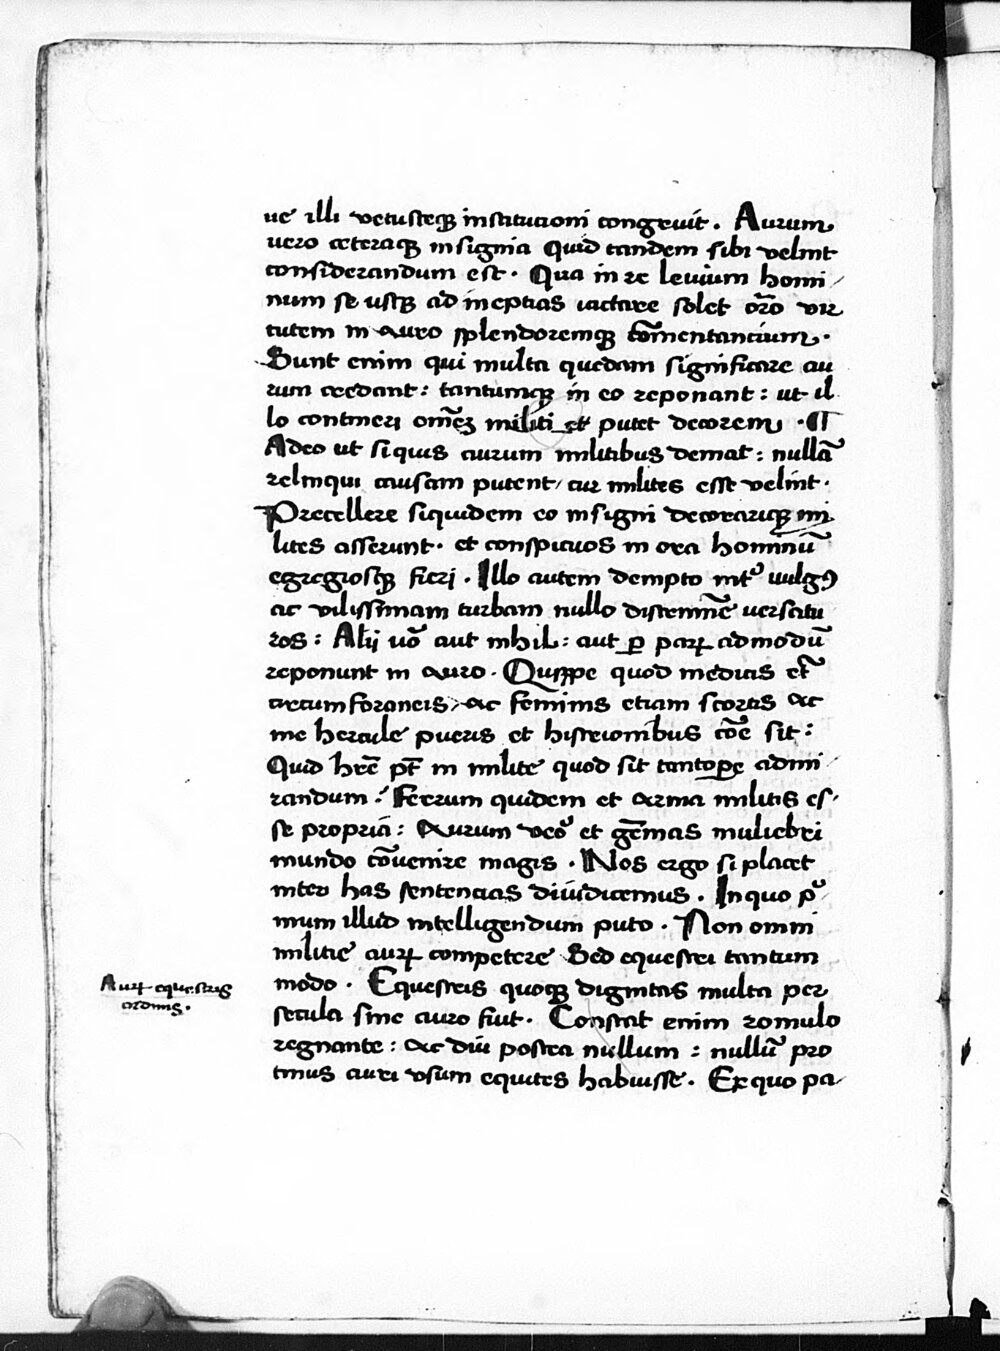 ue illi vetusteqꝫ institutioni congruit. Aurum
vero ceteraqꝫ insignia Quid tandem sibi velint
considerandum est. Qua in re leuium homi
num se usqꝫ ad ineptias iactare solet or̄o vir
tutem in auro splendoremqꝫ com̄entantium.
Sunt enim qui multa quedam significare au
rum credant: tantumqꝫ in eo reponant: ut il
lo contineri om̄eꝫ militie et putet decorem. ¶
Adeo ut siquis aurum militibus demat: nullā
relinqui causam putent/ cur milites esse velint.
Precellere siquidem eo insigni decorariqꝫ mi
lites asserunt. et conspicuos in ora hominū
egregiosqꝫ fieri. Illo autem dempto intᵒ uulgꝰ
ac vilissimam turbam nullo discrimīe uersatu
ros: Alij uō aut nihil: aut ꝑ paꝝ admodū
reponunt in auro. Quippe quod medicis et̄
circumforaneis, ac feminis etiam scortis ac
me hercule pueris et histrionibus cōe sit:
Quid hr̄e pt̄ in milite quod sit tantopꝑe admi
randum? Ferrum quidem et arma militis es
se propria: Aurum veoᵒ et gēmas muliebri
mundo cōuenire magis. Nos ergo si placet
inter has sentencias diiudicemus. In quo pᵒ
mum illud intelligendum puto. Non omni
militie auꝝ competere Sed equestri tantum
modo. Equestris quoqꝫ dignitas multa per
secula sine auro fiut. Constat enim romulo
regnante: ac diu postea nullum: nullū pro
tinus auri vsum equites habuisse. Ex quo pa
Auꝝ equestris
ordinis.